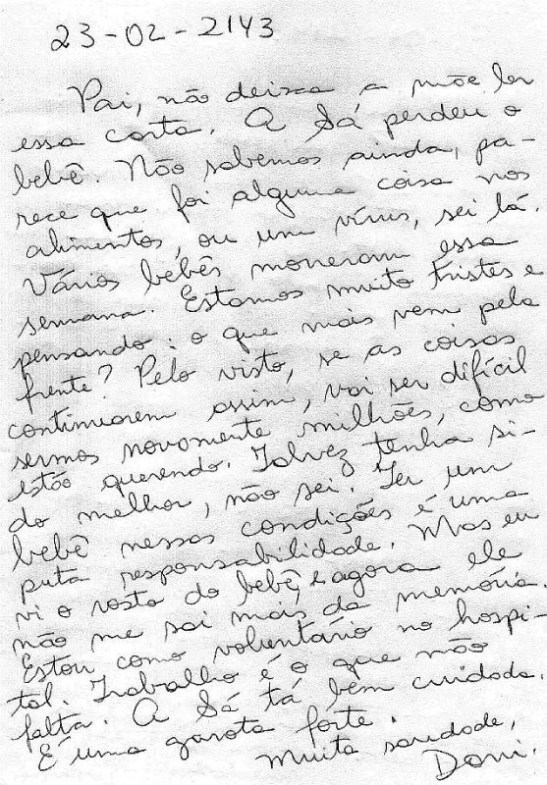 23-02-2143
Pai, não deixa a mãe ler
essa carta. A Sá perdeu o
bebê. Não sabemos ainda, pa-
rece que foi alguma coisa nos
alimentos, ou um vírus, sei lá.
Vários bebês morreram essa
semana. Estamos muito tristes e
pensando: o que mais vem pela
frente? Pelo visto, se as coisas
continuarem assim, vai ser difícil
sermos novamente milhões, como
estão querendo. Talvez tenha si-
do melhor, não sei. Ter um
bebê nessas condições é uma
puta responsabilidade. Mas eu
vi o rosto do bebê, e agora ele
não me sai mais da memória.
Estou como voluntário no hospi-
tal. Trabalho é o que não
falta. A Sá tá bem cuidada.
É uma garota forte.
Muita saudade,
Dani.